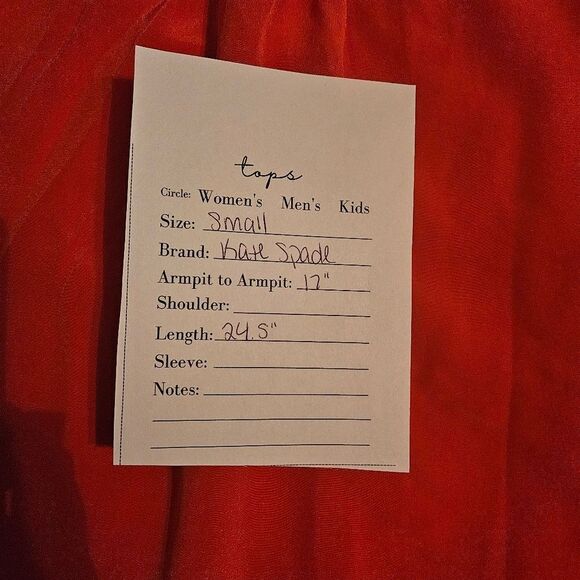 tops
Circle: Women's Men's Kids
Size: Small
Brand: Kate Spade
Armpit to Armpit: 17"
Shoulder:
Length: 24.5"
Sleeve:
Notes: